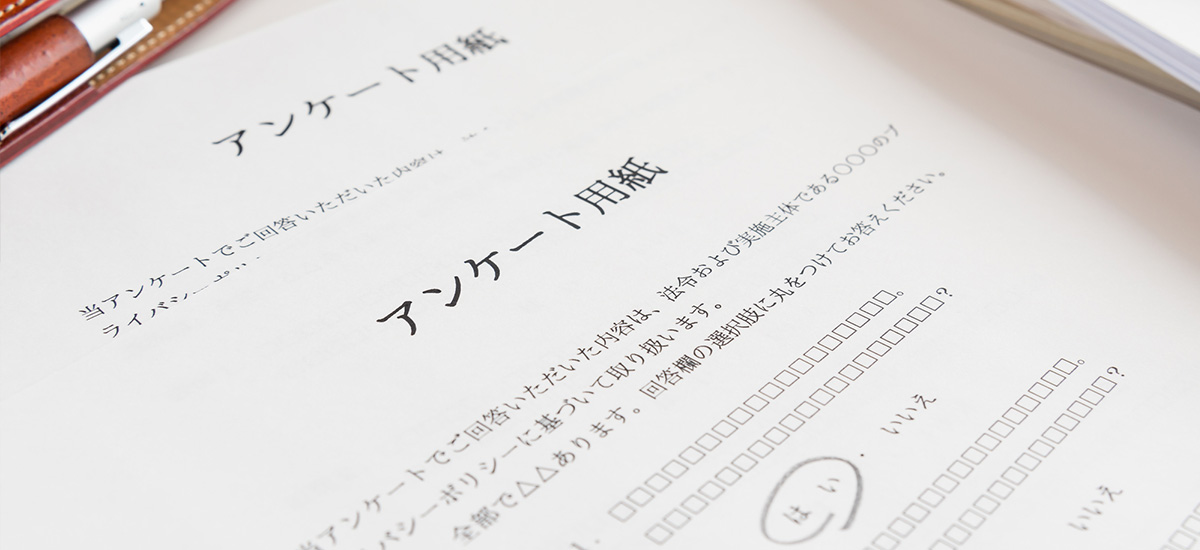 アンケート用紙
当アンケートでご回答いただいた内容は
ライバシ
アンケート用紙
当アンケートでご回答いただいた内容は、法令および実施主体である○○○のプ
バシーポリシーに基づいて取り扱います。
全部で△△あります。回答欄の選択肢に丸をつけてお答えください。
□□□□□□□□□□□□□□□□□□□。
□□□□□□□□□□□□□□□□□□□?
はい いいえ
□□□□□□□□□□□□□。
□□□□□□□□□□□□□?
いいえ